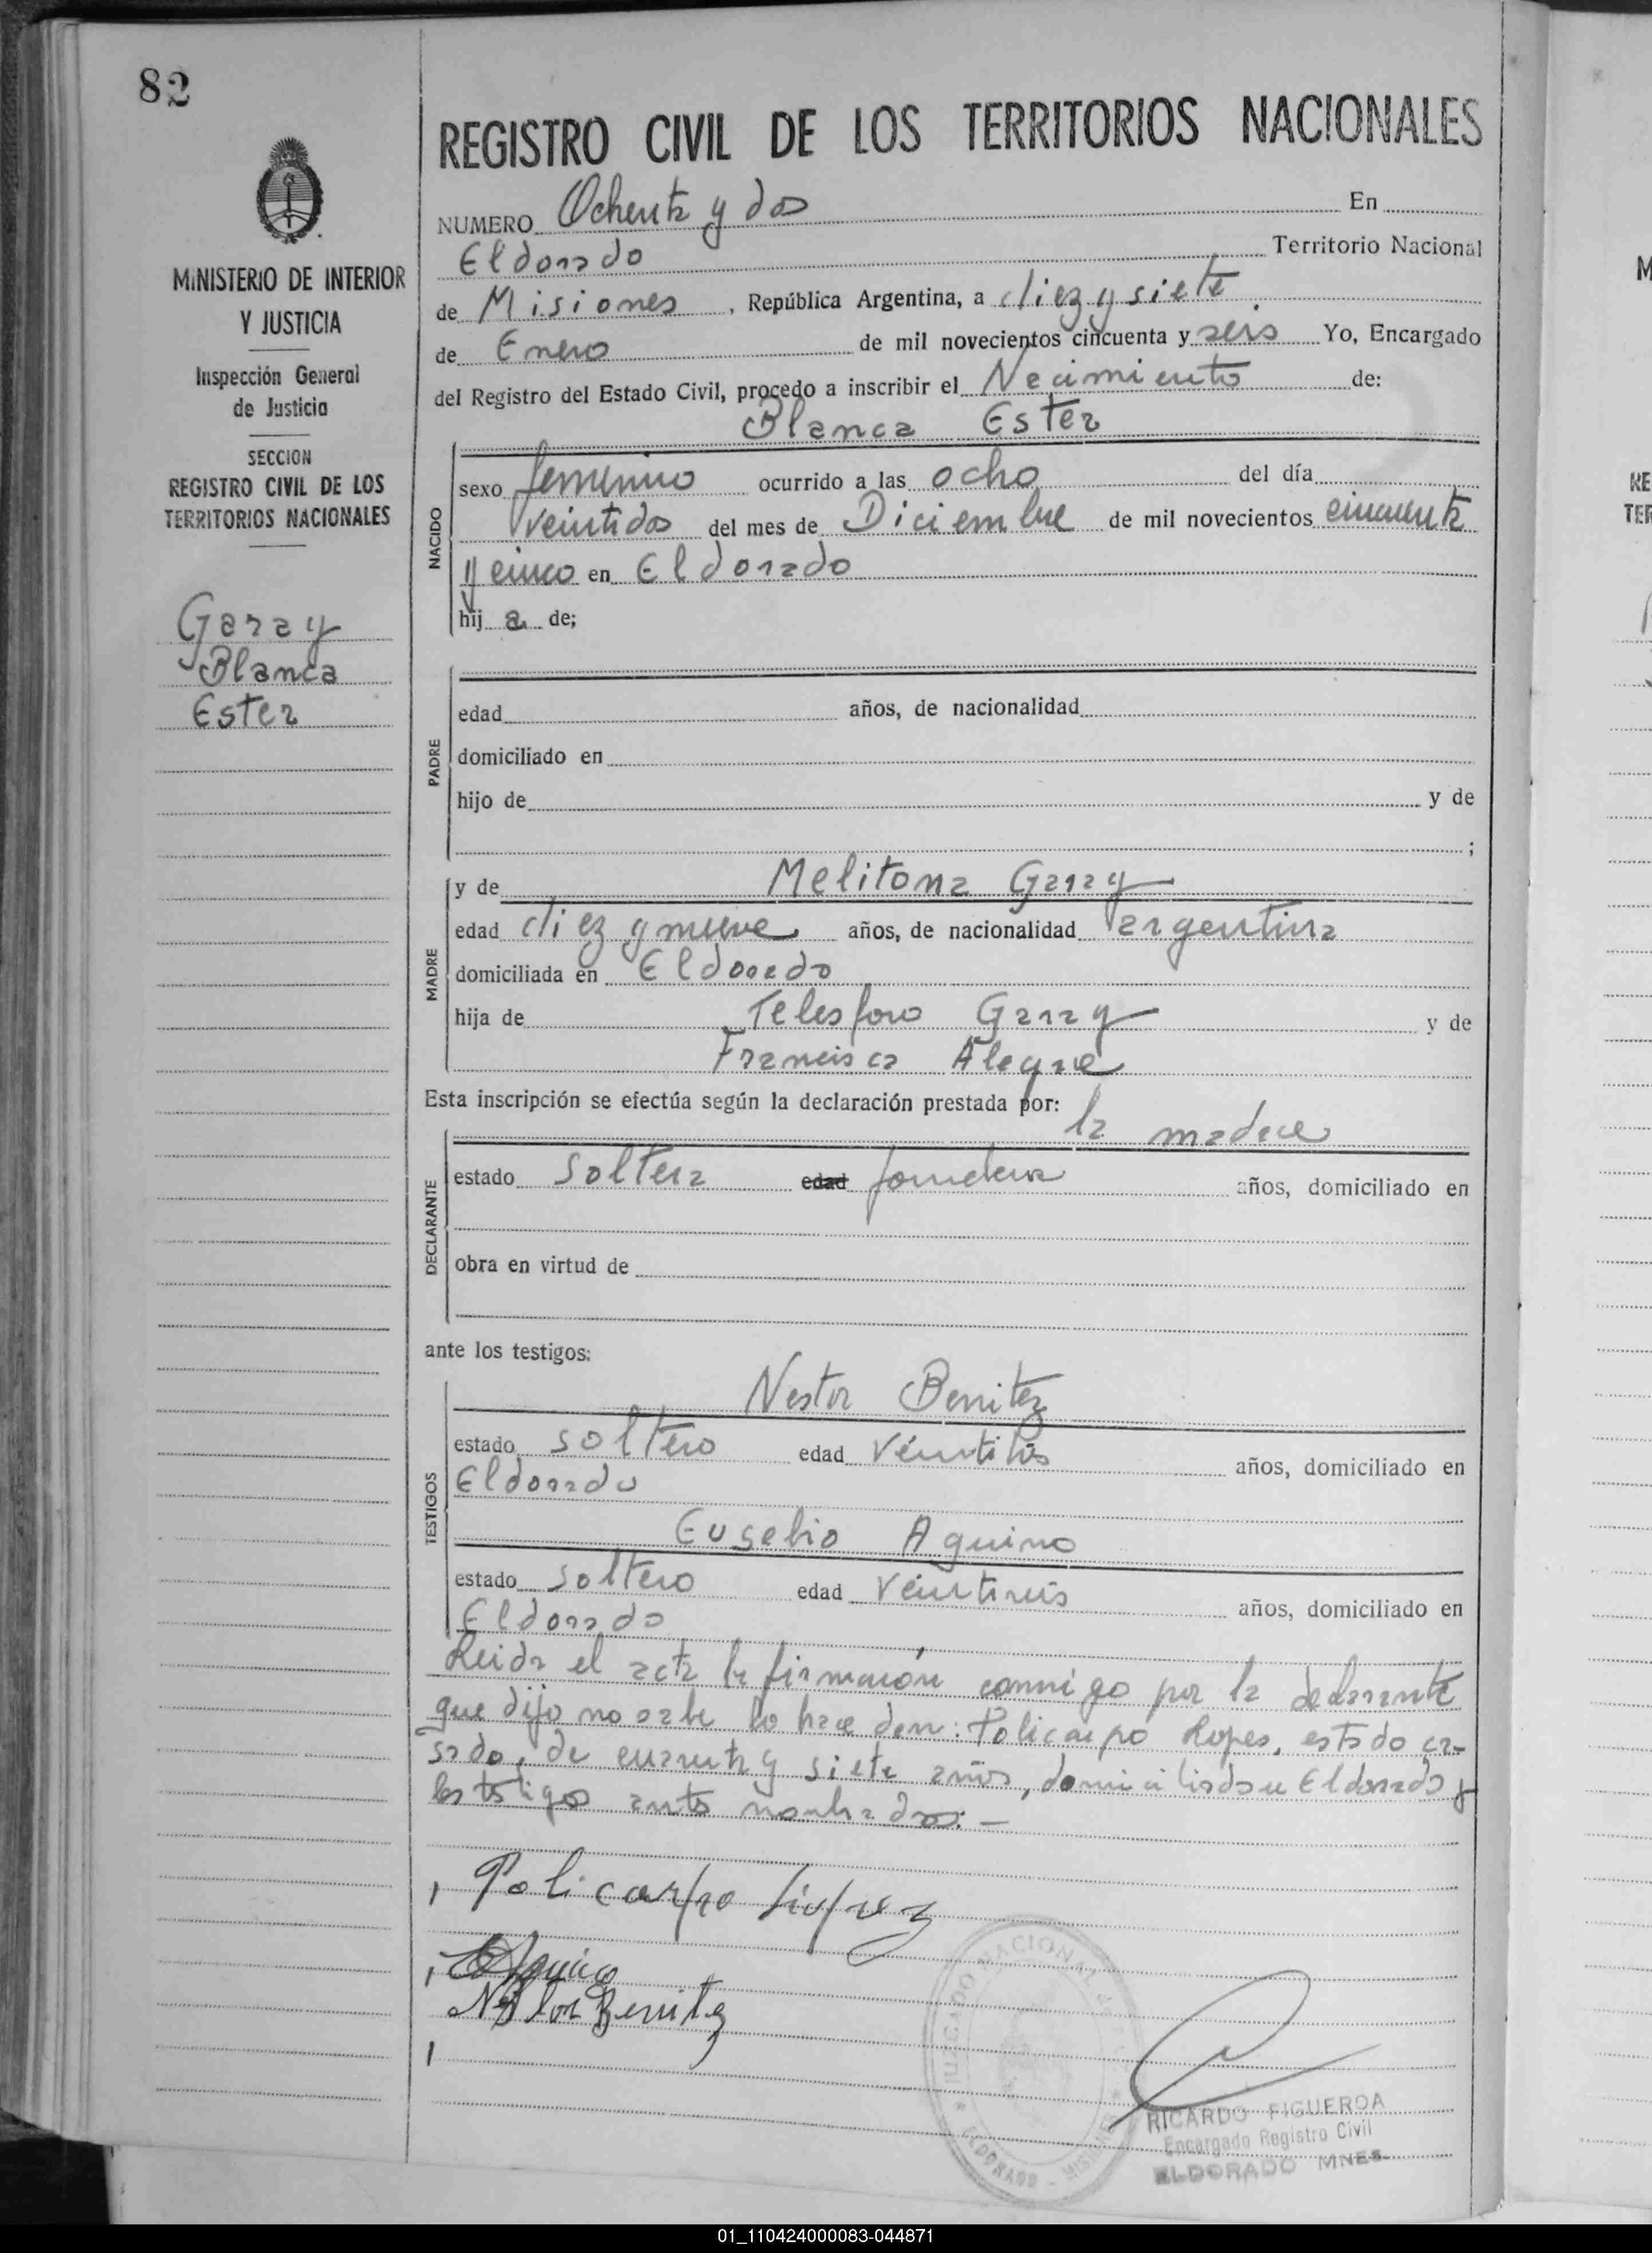 82
REGISTRO CIVIL DE LOS TERRITORIOS NACIONALES
MINISTERIO DE INTERIOR
Y JUSTICIA
Inspección General
de Justicia
SECCION
REGISTRO CIVIL DE LOS
TERRITORIOS NACIONALES
Garay
Blanca
Ester
NUMERO Ochenta y dos En
Eldorado Territorio Nacional
de Misiones, República Argentina, a diez y siete
de Enero de mil novecientos cincuenta y seis Yo, Encargado
del Registro del Estado Civil, procedo a inscribir el Nacimiento de:
Blanca Ester
NACIDO
sexo femenino ocurrido a las ocho del día
veintidos del mes de Diciembre de mil novecientos cincuenta
y cinco en Eldorado
hij a de;
PADRE
edad años, de nacionalidad
domiciliado en
hijo de y de
;
MADRE
y de Melitona Garay
edad diez y nueve años, de nacionalidad argentina
domiciliada en Eldorado
hija de Telesforo Garay y de
Francisca Alegre
Esta inscripción se efectúa según la declaración prestada por:
la madre
DECLARANTE
estado soltera edad jornalera años, domiciliado en
obra en virtud de
ante los testigos:
TESTIGOS
Nestor Benitez
estado soltero edad años, domiciliado en
Eldorado
Eusebio Aquino
estado soltero edad veintiseis años, domiciliado en
Eldorado
Leida el acta la firmaron conmigo por la declarante
que dijo no sabe lo hace don: Policarpo Lopes, estado ca-
sado, de cuarenta y siete años, domiciliado en Eldorado y
los testigos antes nombrados.—
Policarpo López
EAquino
Nestor Benitez
JUZGADO NACIONAL DE
ELDORADO - MISIONES
RICARDO FIGUEROA
Encargado Registro Civil
ELDORADO MNES.
RE
TER
01_110424000083-044871